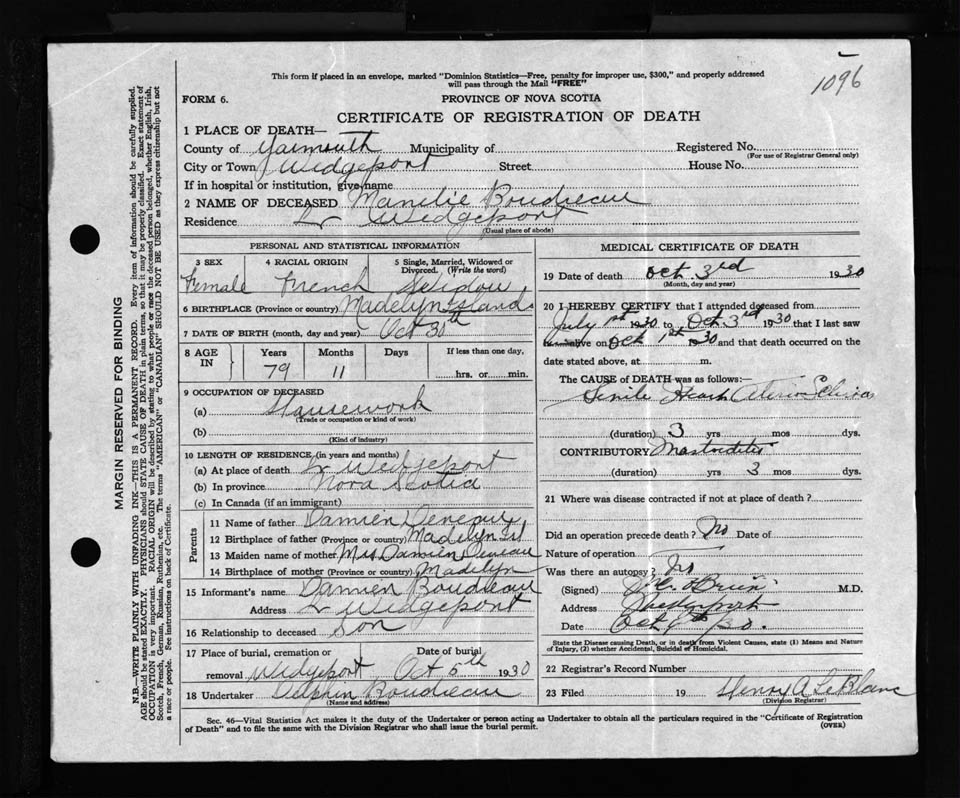 1096
This form if placed in an envelope, marked "Dominion Statistics—Free, penalty for improper use, $300," and properly addressed
will pass through the Mail "FREE"
FORM 6.
PROVINCE OF NOVA SCOTIA
CERTIFICATE OF REGISTRATION OF DEATH
1 PLACE OF DEATH—
County of Yarmouth Municipality of Registered No.
(For use of Registrar General only)
City or Town Wedgeport Street House No.
If in hospital or institution, give name
2 NAME OF DECEASED Manilie Boudreau
Residence Lr Wedgeport
(Usual place of abode)
PERSONAL AND STATISTICAL INFORMATION
3 SEX 4 RACIAL ORIGIN 5 Single, Married, Widowed or
Divorced. (Write the word)
Female French Widow
6 BIRTHPLACE (Province or country) Madelyn Island
7 DATE OF BIRTH (month, day and year) Oct 30th
8 AGE IN Years Months Days If less than one day,
79 11 hrs. or min.
9 OCCUPATION OF DECEASED
(a) Housework
(Trade or occupation or kind of work)
(b)
(Kind of industry)
10 LENGTH OF RESIDENCE (in years and months)
(a) At place of death Lr Wedgeport
(b) In province Nova Scotia
(c) In Canada (if an immigrant)
Parents
11 Name of father Damien
12 Birthplace of father (Province or country) Madelyn Isl
13 Maiden name of mother Mrs Damien
14 Birthplace of mother (Province or country) Madelyn
15 Informant's name Damien Boudreau
Address Lr Wedgeport
16 Relationship to deceased Son
17 Place of burial, cremation or Date of burial
removal Wedgeport Oct 5th 1930
18 Undertaker Delphin Boudreau
(Name and address)
MEDICAL CERTIFICATE OF DEATH
19 Date of death Oct 3rd 1930
(Month, day and year)
20 I HEREBY CERTIFY that I attended deceased from
July 1st 1930 to Oct 3rd 1930 that I last saw
alive on Oct 1st 1930 and that death occurred on the
date stated above, at m.
The CAUSE of DEATH was as follows:—
Senile Heart
(duration) 3 yrs mos dys.
CONTRIBUTORY
(duration) yrs 3 mos dys.
21 Where was disease contracted if not at place of death?
Did an operation precede death? No Date of
Nature of operation
Was there an autopsy? No
(Signed) O'Brien M.D.
Address Wedgeport
Date Oct 30.
State the Disease causing Death, or in death from Violent Causes, state (1) Means and Nature
of Injury, (2) whether Accidental, Suicidal or Homicidal.
22 Registrar's Record Number
23 Filed 19 Henry A LeBlanc
(Division Registrar)
Sec. 46—Vital Statistics Act makes it the duty of the Undertaker or person acting as Undertaker to obtain all the particulars required in the "Certificate of Registration
of Death" and to file the same with the Division Registrar who shall issue the burial permit.
(OVER)
MARGIN RESERVED FOR BINDING
N.B.—WRITE PLAINLY WITH UNFADING INK—THIS IS A PERMANENT RECORD. Every item of information should be carefully supplied.
AGE should be stated EXACTLY. PHYSICIANS should STATE CAUSE OF DEATH in plain terms, so that it may be properly classified. Exact statement of
OCCUPATION is very important. RACIAL ORIGIN will be described by stating to what people or race the deceased person belonged, whether English, Irish,
Scotch, French, German, Russian, Ruthenian, etc. The terms "AMERICAN" or "CANADIAN" SHOULD NOT BE USED as they express citizenship but not
a race or people. See instructions on back of Certificate.